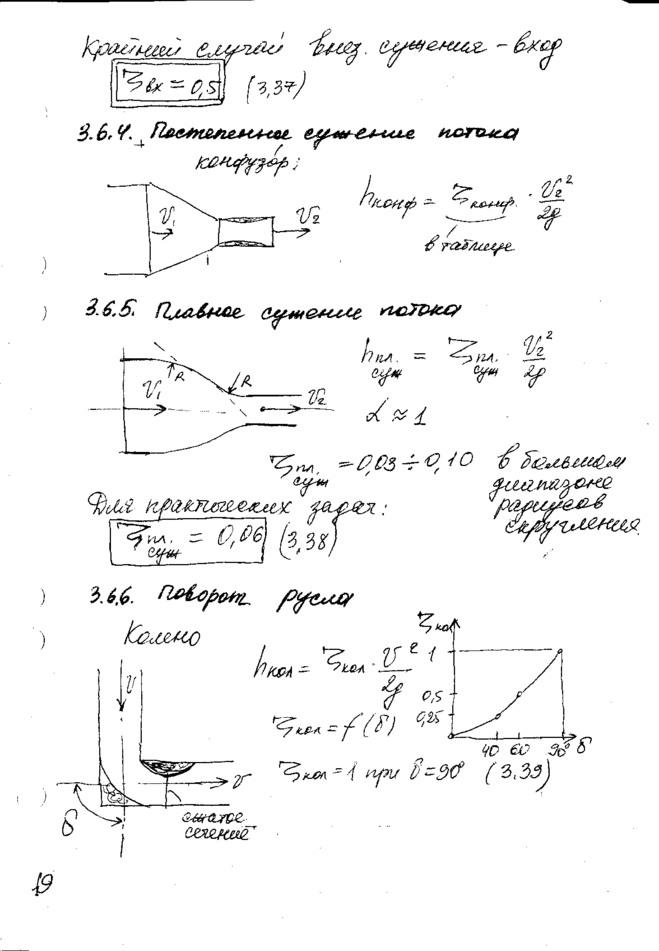 Крайний случай внез. сужения – вход
ζвх = 0,5 (3,37)
3.6.4. Постепенное сужение потока
конфузор:
v₁
v₂
hконф = ζконф. · v₂²/2g
в таблице
3.6.5. Плавное сужение потока
v₁
R
R
v₂
hпл. суж = ζпл. суж v₂²/2g
α ≈ 1
ζпл. суж = 0,03 ÷ 0,10 в большом
диапазоне
радиусов
скругления.
Для практических задач:
ζпл. суж = 0,06 (3,38)
3.6.6. Поворот русла
Колено
v
v
δ
сжатое
сечение
hкол = ζкол · v²/2g
ζкол = f(δ)
ζкол
1
0,5
0,25
40 60 90° δ
ζкол = 1 при δ = 90° (3,39)
19